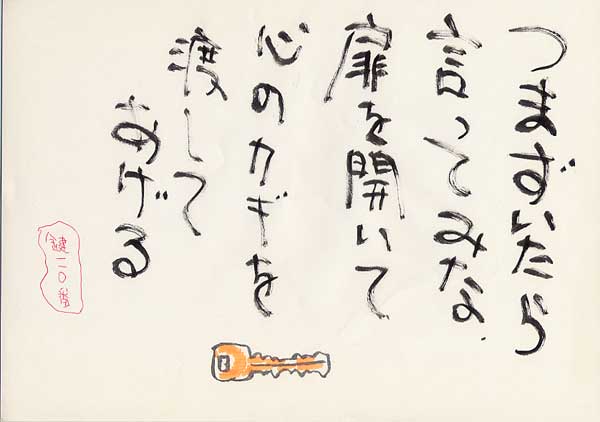 つまずいたら
言ってみな
扉を開いて
心のカギを
渡して
あげる
鍵一一〇番